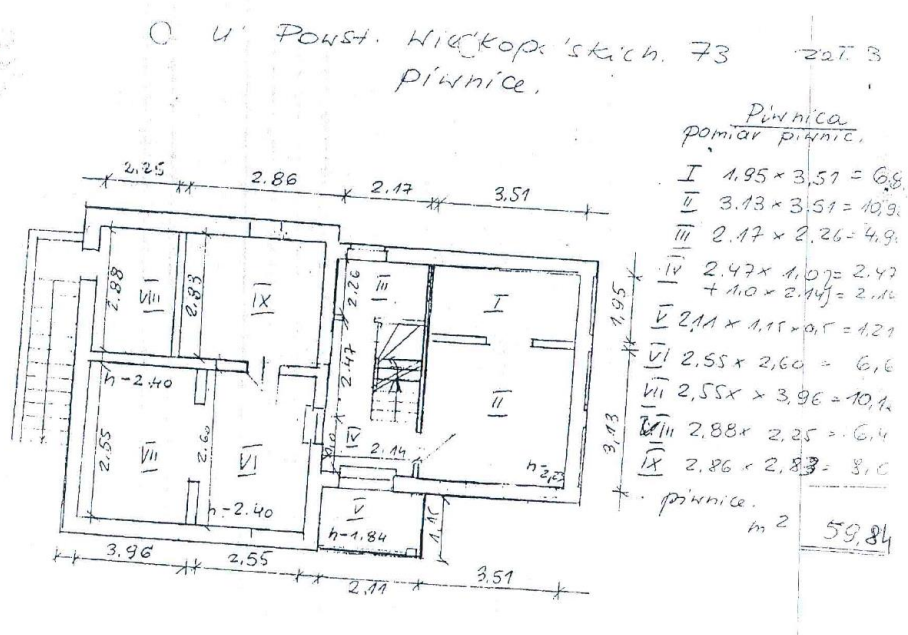 ul Powst. Wielkopolskich. 73 zał. 3
piwnice.
Piwnica
pomiar piwnic.
I 1.95 x 3,51 = 6,8
II 3.13 x 3,51 = 10,9
III 2.17 x 2.26 = 4.9
IV 2.47 x 1.0 = 2.47
+ 1.0 x 2.14 = 2.14
V 2,11 x 1,15 x 0,5 = 1.21
VI 2,55 x 2,60 = 6,6
VII 2,55 x x 3,96 = 10,1
VIII 2,88 x 2,25 = 6,4
IX 2,86 x 2,83 = 8,0
piwnice.
m2 59,84
2.25 2.86 2.17 3.51
2.88 VIII 2.83 IX 2.26 III I 1,95
h-2.40 2.47 II
2.55 VII 2.60 VI IV 2.14 3,13
h-2.40 V
h-1.84 1.15
3.96 2,55 2,11 3.51